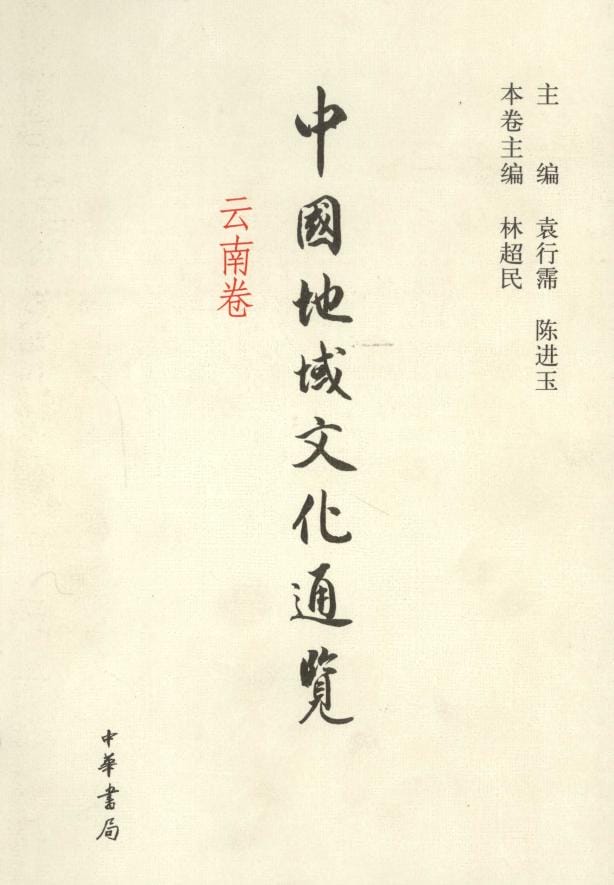 主 编 袁行霈 陈进玉
本卷主编 林超民
中國地域文化通覽
云南卷
中華書局